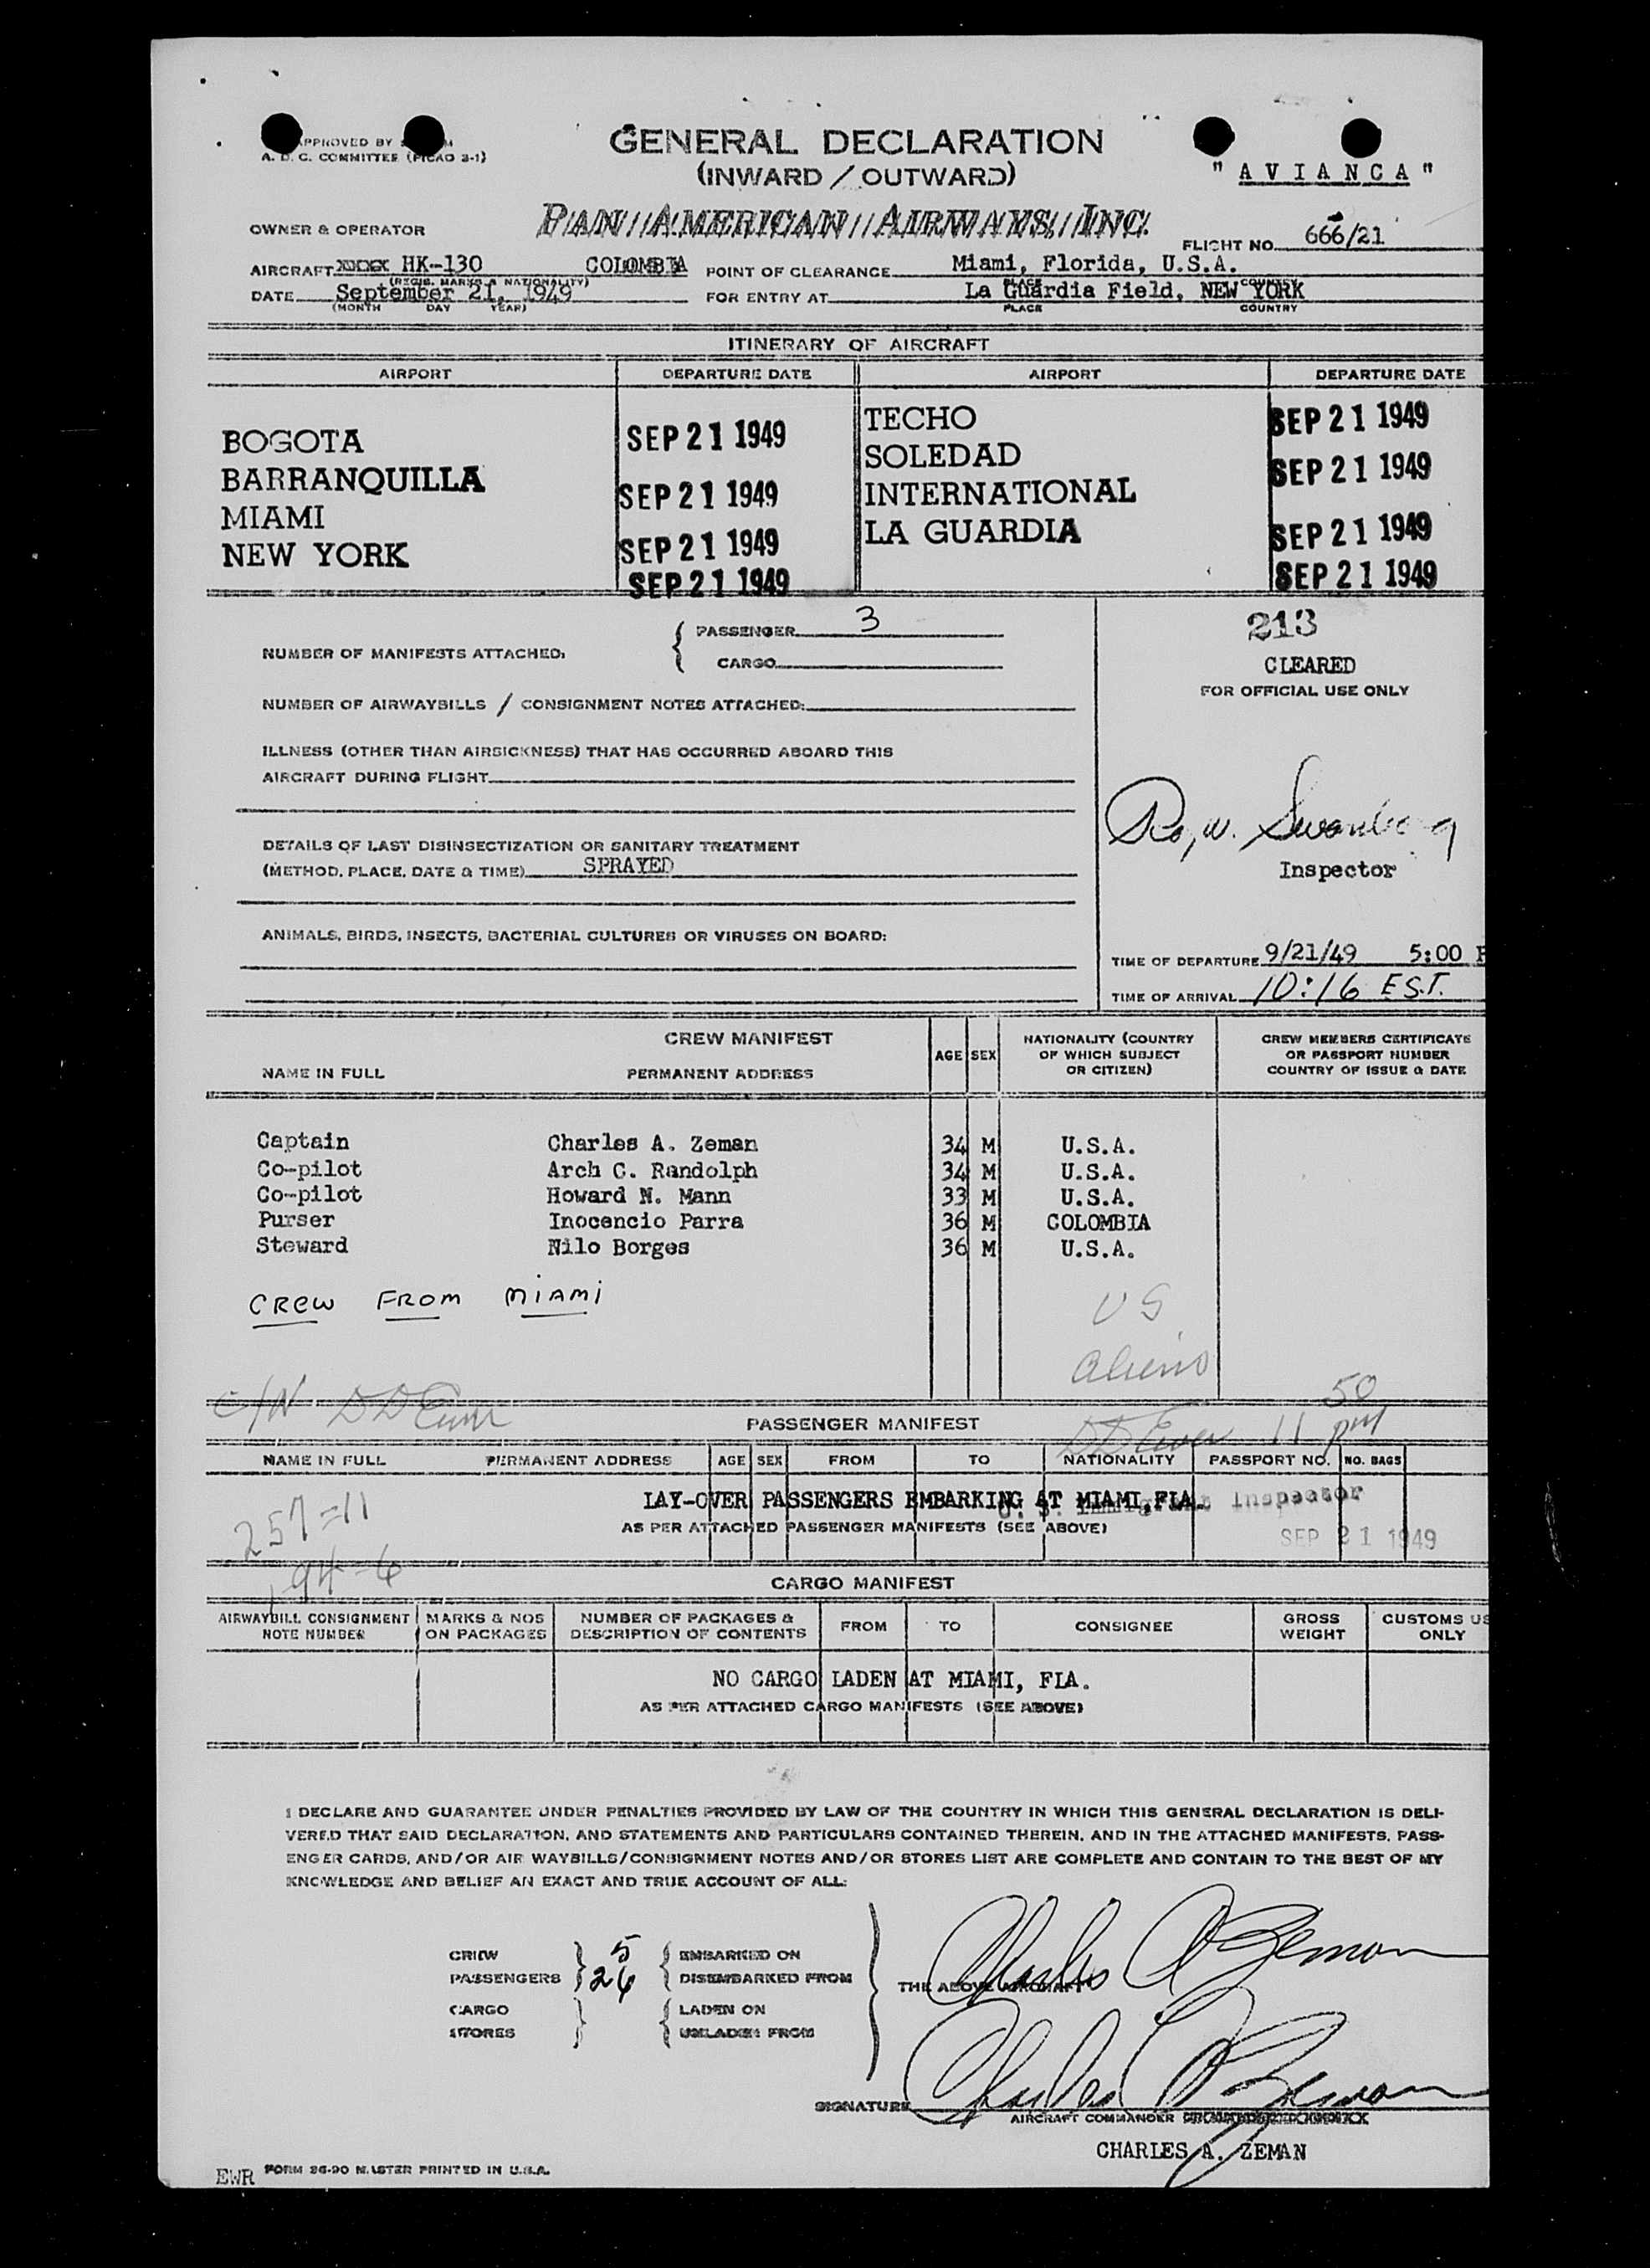 APPROVED BY
A. D. C. COMMITTEE (PICAO 2-1)
GENERAL DECLARATION
(INWARD / OUTWARD)
" A V I A N C A "
OWNER & OPERATOR
PAN AMERICAN AIRWAYS, INC.
FLIGHT NO. 666/21
AIRCRAFT HK-130 COLOMBIA
(REGIS. MARKS & NATIONALITY)
POINT OF CLEARANCE Miami, Florida, U.S.A.
PLACE COUNTRY
DATE September 21, 1949
(MONTH DAY YEAR)
FOR ENTRY AT La Guardia Field, NEW YORK
PLACE COUNTRY
ITINERARY OF AIRCRAFT
AIRPORT DEPARTURE DATE AIRPORT DEPARTURE DATE
BOGOTA SEP 21 1949 TECHO SEP 21 1949
BARRANQUILLA SEP 21 1949 SOLEDAD SEP 21 1949
MIAMI SEP 21 1949 INTERNATIONAL SEP 21 1949
NEW YORK SEP 21 1949 LA GUARDIA SEP 21 1949
NUMBER OF MANIFESTS ATTACHED:
PASSENGER 3
CARGO
213
CLEARED
FOR OFFICIAL USE ONLY
NUMBER OF AIRWAYBILLS / CONSIGNMENT NOTES ATTACHED:
ILLNESS (OTHER THAN AIRSICKNESS) THAT HAS OCCURRED ABOARD THIS
AIRCRAFT DURING FLIGHT
Roy W. Swanberg
Inspector
DETAILS OF LAST DISINSECTIZATION OR SANITARY TREATMENT
(METHOD, PLACE, DATE & TIME) SPRAYED
ANIMALS, BIRDS, INSECTS, BACTERIAL CULTURES OR VIRUSES ON BOARD:
TIME OF DEPARTURE 9/21/49 5:00 P
TIME OF ARRIVAL 10:16 E.S.T.
CREW MANIFEST
NAME IN FULL PERMANENT ADDRESS
AGE SEX
NATIONALITY (COUNTRY
OF WHICH SUBJECT
OR CITIZEN)
CREW MEMBERS CERTIFICATE
OR PASSPORT NUMBER
COUNTRY OF ISSUE & DATE
Captain Charles A. Zeman 34 M U.S.A.
Co-pilot Arch C. Randolph 34 M U.S.A.
Co-pilot Howard N. Mann 33 M U.S.A.
Purser Inocencio Parra 36 M COLOMBIA
Steward Nilo Borges 36 M U.S.A.
CREW FROM MIAMI
US
aliens
50
11 pm
PASSENGER MANIFEST
NAME IN FULL PERMANENT ADDRESS AGE SEX FROM TO NATIONALITY PASSPORT NO. NO. BAGS
LAY-OVER PASSENGERS EMBARKING AT MIAMI,FLA.
U. S. Immigrant Inspector
AS PER ATTACHED PASSENGER MANIFESTS (SEE ABOVE)
SEP 21 1949
257=11
94-6
CARGO MANIFEST
AIRWAYBILL CONSIGNMENT
NOTE NUMBER
MARKS & NOS
ON PACKAGES
NUMBER OF PACKAGES &
DESCRIPTION OF CONTENTS
FROM TO CONSIGNEE
GROSS
WEIGHT
CUSTOMS US
ONLY
NO CARGO LADEN AT MIAMI, FLA.
AS PER ATTACHED CARGO MANIFESTS (SEE ABOVE)
I DECLARE AND GUARANTEE UNDER PENALTIES PROVIDED BY LAW OF THE COUNTRY IN WHICH THIS GENERAL DECLARATION IS DELI-
VERED THAT SAID DECLARATION, AND STATEMENTS AND PARTICULARS CONTAINED THEREIN, AND IN THE ATTACHED MANIFESTS, PASS-
ENGER CARDS, AND/OR AIR WAYBILLS/CONSIGNMENT NOTES AND/OR STORES LIST ARE COMPLETE AND CONTAIN TO THE BEST OF MY
KNOWLEDGE AND BELIEF AN EXACT AND TRUE ACCOUNT OF ALL:
CREW 5 EMBARKED ON
PASSENGERS 26 DISEMBARKED FROM
THE ABOVE AIRCRAFT
Charles A Zeman
CARGO LADEN ON
STORES UNLADEN FROM
SIGNATURE Charles A Zeman
AIRCRAFT COMMANDER
CHARLES A. ZEMAN
EWR FORM 36-90 MASTER PRINTED IN U.S.A.